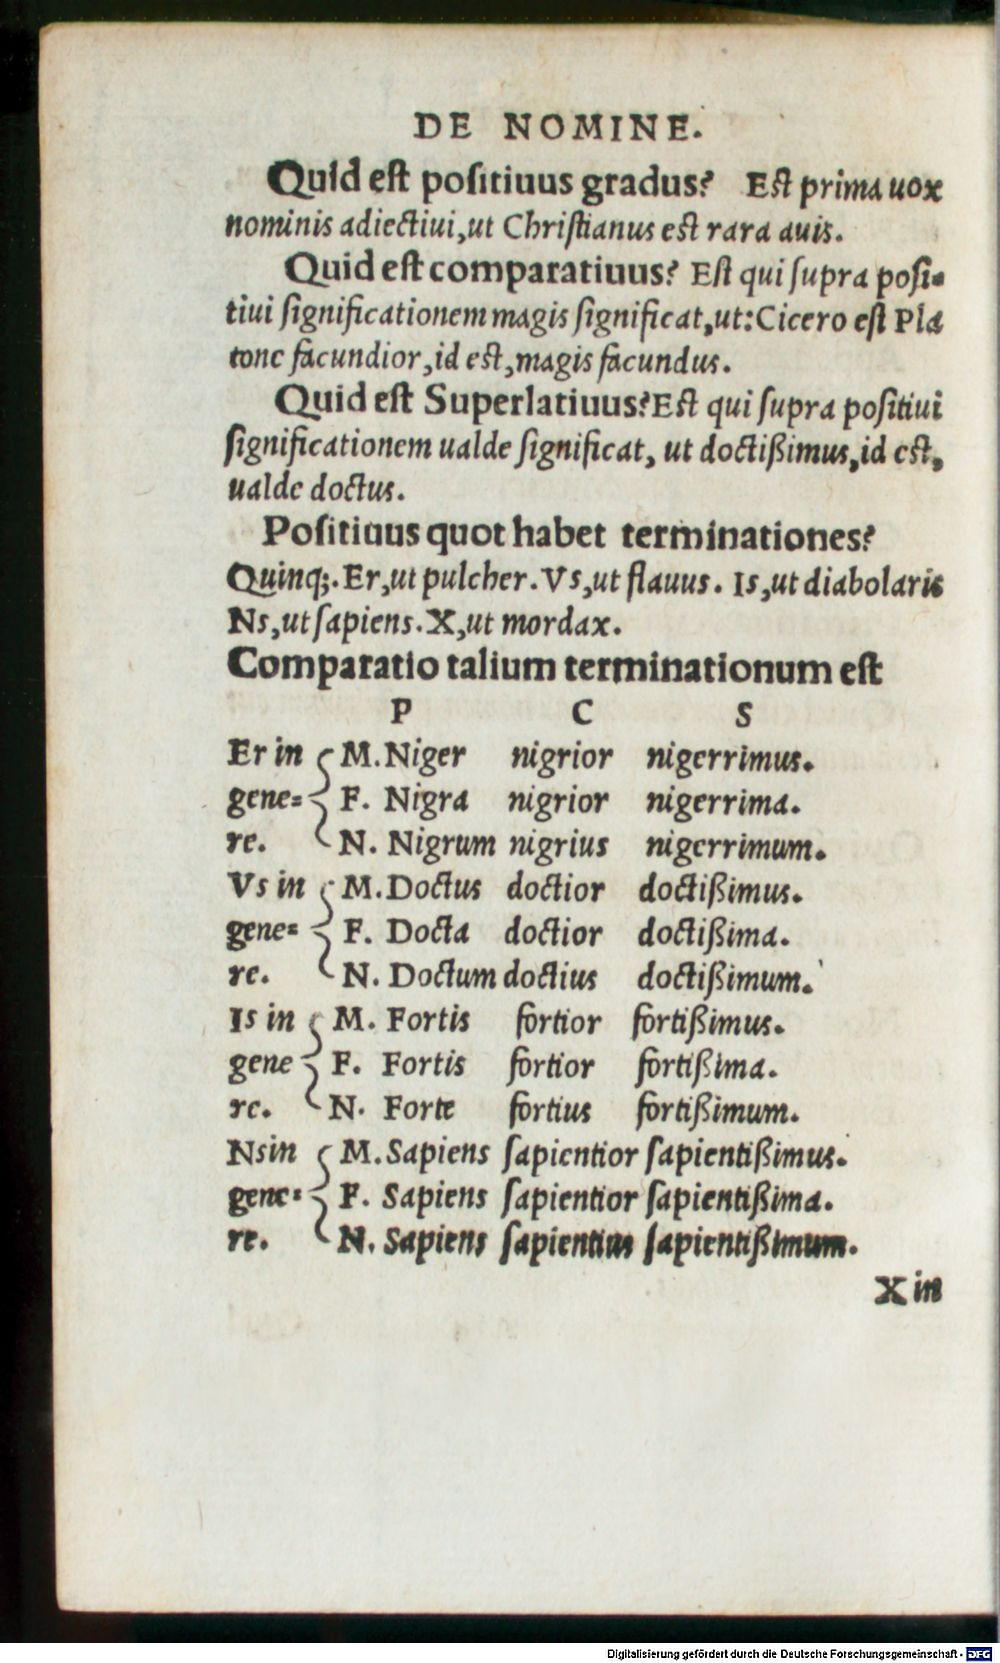 DE NOMINE.
Quid eſt poſitiuus gradus? Eſt prima uox
nominis adiectiui,ut Chriſtianus eſt rara auis.
Quid eſt comparatiuus? Eſt qui ſupra poſi-
tiui ſignificationem magis ſignificat,ut:Cicero eſt Pla
tone facundior,id eſt,magis facundus.
Quid eſt Superlatiuus?Eſt qui ſupra poſitiui
ſignificationem ualde ſignificat, ut doctißimus,id eſt,
ualde doctus.
Poſitiuus quot habet terminationes?
Quinq;.Er,ut pulcher.Vs,ut flauus. Is,ut diabolaris
Ns,ut ſapiens.X,ut mordax.
Comparatio talium terminationum eſt
P C S
Er in M.Niger nigrior nigerrimus.
gene= F. Nigra nigrior nigerrima.
re. N. Nigrum nigrius nigerrimum.
Vs in M.Doctus doctior doctißimus.
gene= F. Docta doctior doctißima.
re. N. Doctum doctius doctißimum.
Is in M. Fortis fortior fortißimus.
gene F. Fortis fortior fortißima.
re. N. Forte fortius fortißimum.
Ns in M.Sapiens ſapientior ſapientißimus.
gene= F. Sapiens ſapientior ſapientißima.
re. N. Sapiens ſapientius ſapientißimum.
X in
Digitalisierung gefördert durch die Deutsche Forschungsgemeinschaft - DFG